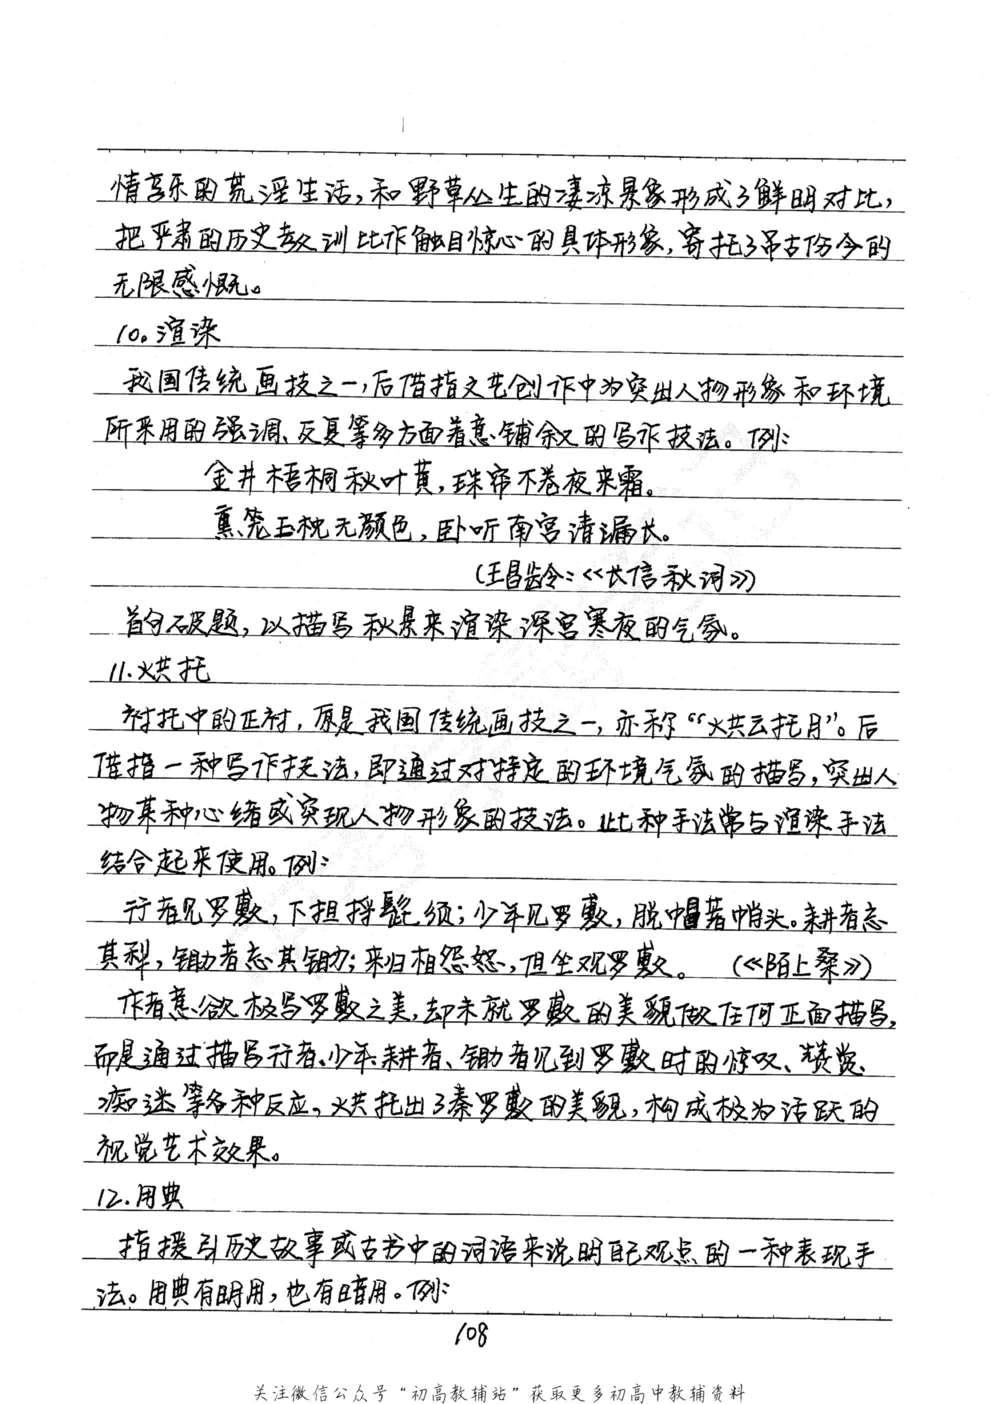 情享乐的荒淫生活，和野草丛生的凄凉景象形成了鲜明对比，
把严肃的历史教训比作触目惊心的具体形象，寄托了吊古伤今的
无限感慨。
10。渲染
我国传统画技之一，后借指文艺创作中为突出人物形象和环境
所采用的强调、反复等多方面着意铺叙的写作技法。例：
金井梧桐秋叶黄，珠帘不卷夜来霜。
熏笼玉枕无颜色，卧听南宫清漏长。
(王昌龄：《长信秋词》)
首句破题，以描写秋景来渲染深宫寒夜的气氛。
11.烘托
衬托中的正衬，原是我国传统画技之一，亦称“烘云托月”。后
借指一种写作技法，即通过对特定的环境气氛的描写，突出人
物某种心绪或实现人物形象的技法。此种手法常与渲染手法
结合起来使用。例：
行者见罗敷，下担捋髭须；少年见罗敷，脱帽著帩头。耕者忘
其犁，锄者忘其锄；来归相怨怒，但坐观罗敷。 (《陌上桑》)
作者意欲极写罗敷之美，却未就罗敷的美貌做任何正面描写，
而是通过描写行者、少年、耕者、锄者见到罗敷时的惊叹、赞赏、
痴迷等各种反应，烘托出了秦罗敷的美貌，构成极为活跃的
视觉艺术效果。
12.用典
指援引历史故事或古书中的词语来说明自己观点的一种表现手
法。用典有明用，也有暗用。例：
108
关注微信公众号“初高教辅站”获取更多初高中教辅资料